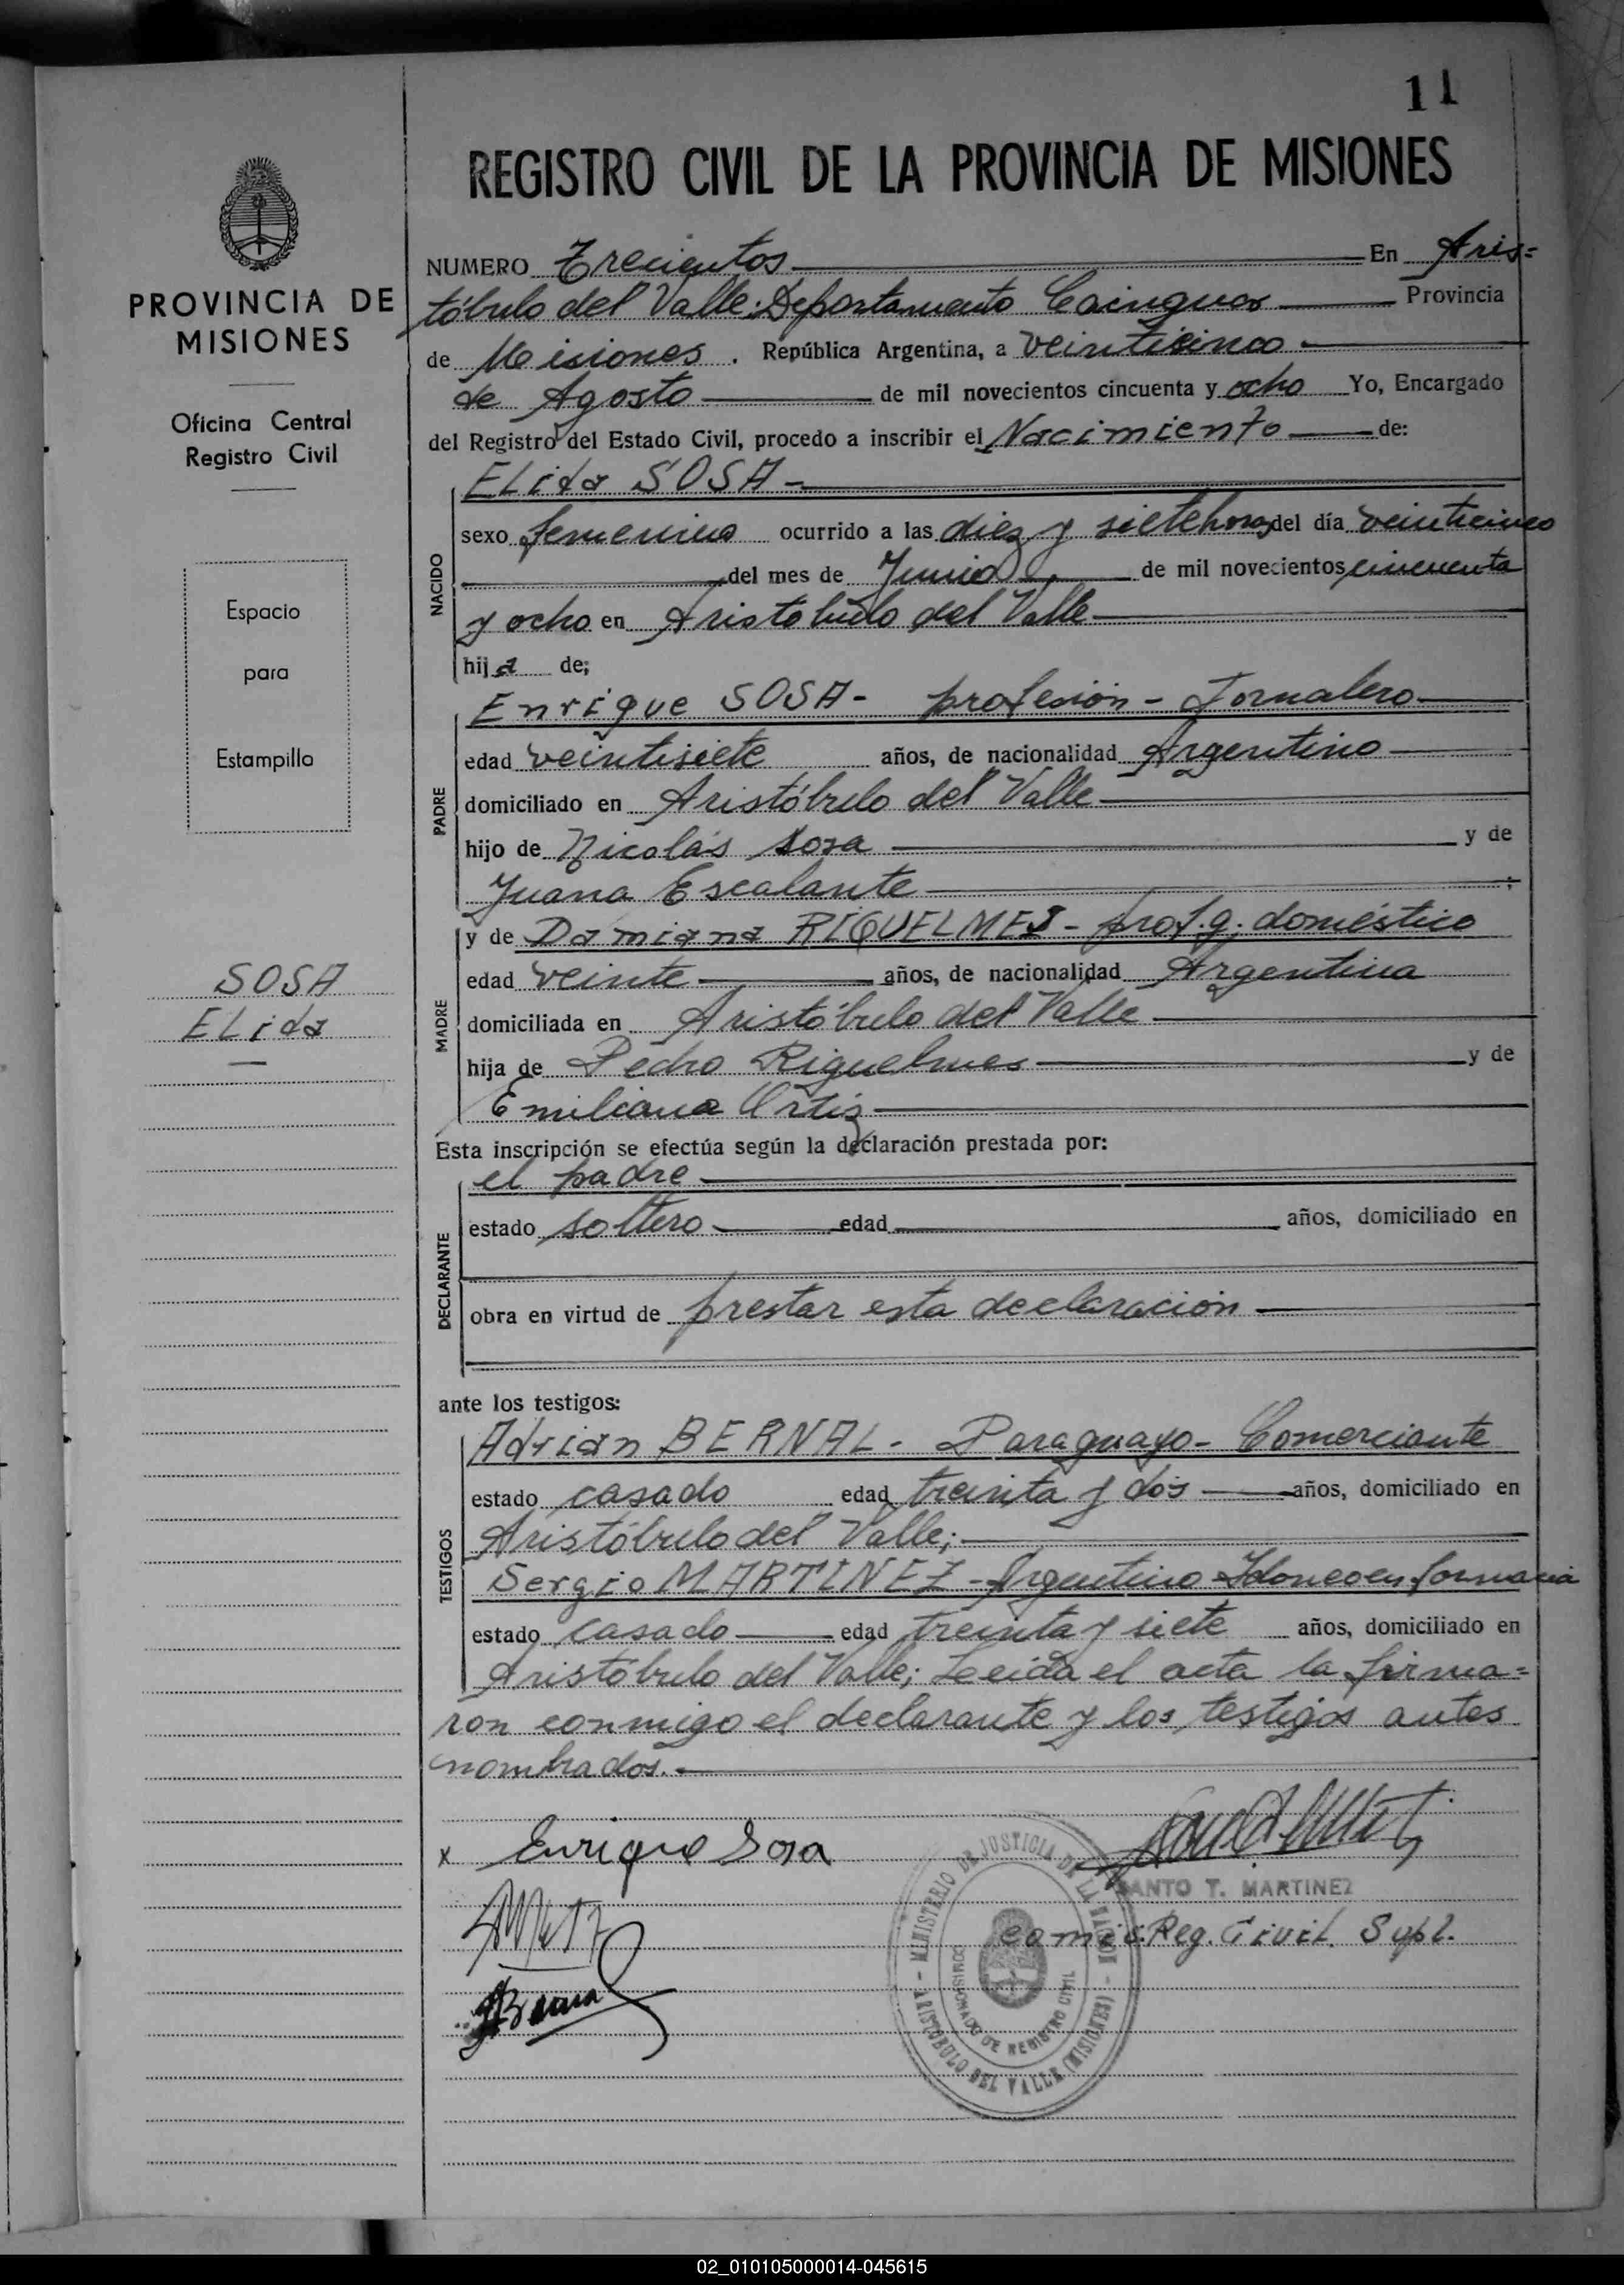 11
REGISTRO CIVIL DE LA PROVINCIA DE MISIONES
PROVINCIA DE
MISIONES
Oficina Central
Registro Civil
Espacio
para
Estampilla
SOSA
ELida
NUMERO Trecientos En Aris=
tóbulo del Valle; Departamento Cainguas Provincia
de Misiones. República Argentina, a veinticinco
de Agosto de mil novecientos cincuenta y ocho Yo, Encargado
del Registro del Estado Civil, procedo a inscribir el Nacimiento de:
NACIDO
ELida SOSA-
sexo femenino ocurrido a las diez y siete horas del día veinticinco
del mes de Junio de mil novecientos cincuenta
y ocho en Aristóbulo del Valle
hija de;
PADRE
Enrique SOSA- profesión - Jornalero
edad veintisiete años, de nacionalidad Argentino
domiciliado en Aristóbulo del Valle
hijo de Nicolás Sosa y de
Juana Escalante ;
MADRE
y de Damiana RIQUELMES - prof. q. doméstico
edad veinte años, de nacionalidad Argentina
domiciliada en Aristóbulo del Valle
hija de Pedro Riquelmes y de
Emiliana Ortiz
Esta inscripción se efectúa según la declaración prestada por:
DECLARANTE
el padre
estado soltero edad años, domiciliado en
obra en virtud de prestar esta declaración
ante los testigos:
TESTIGOS
Adrian BERNAL - Paraguayo - Comerciante
estado casado edad treinta y dos años, domiciliado en
Aristóbulo del Valle;
Sergio MARTINEZ - Argentino - Idoneo en farmacia
estado casado edad treinta y siete años, domiciliado en
Aristóbulo del Valle; Leida el acta la firma=
ron conmigo el declarante y los testigos antes
nombrados.
x Enrique Sosa
SANTO T. MARTINEZ
Comis. Reg. Civil. Supl.
ABernal
MINISTERIO DE JUSTICIA DE LA NACION
COMISIONADO DE REGISTRO CIVIL
ARISTOBULO DEL VALLE (MISIONES)
02_010105000014-045615